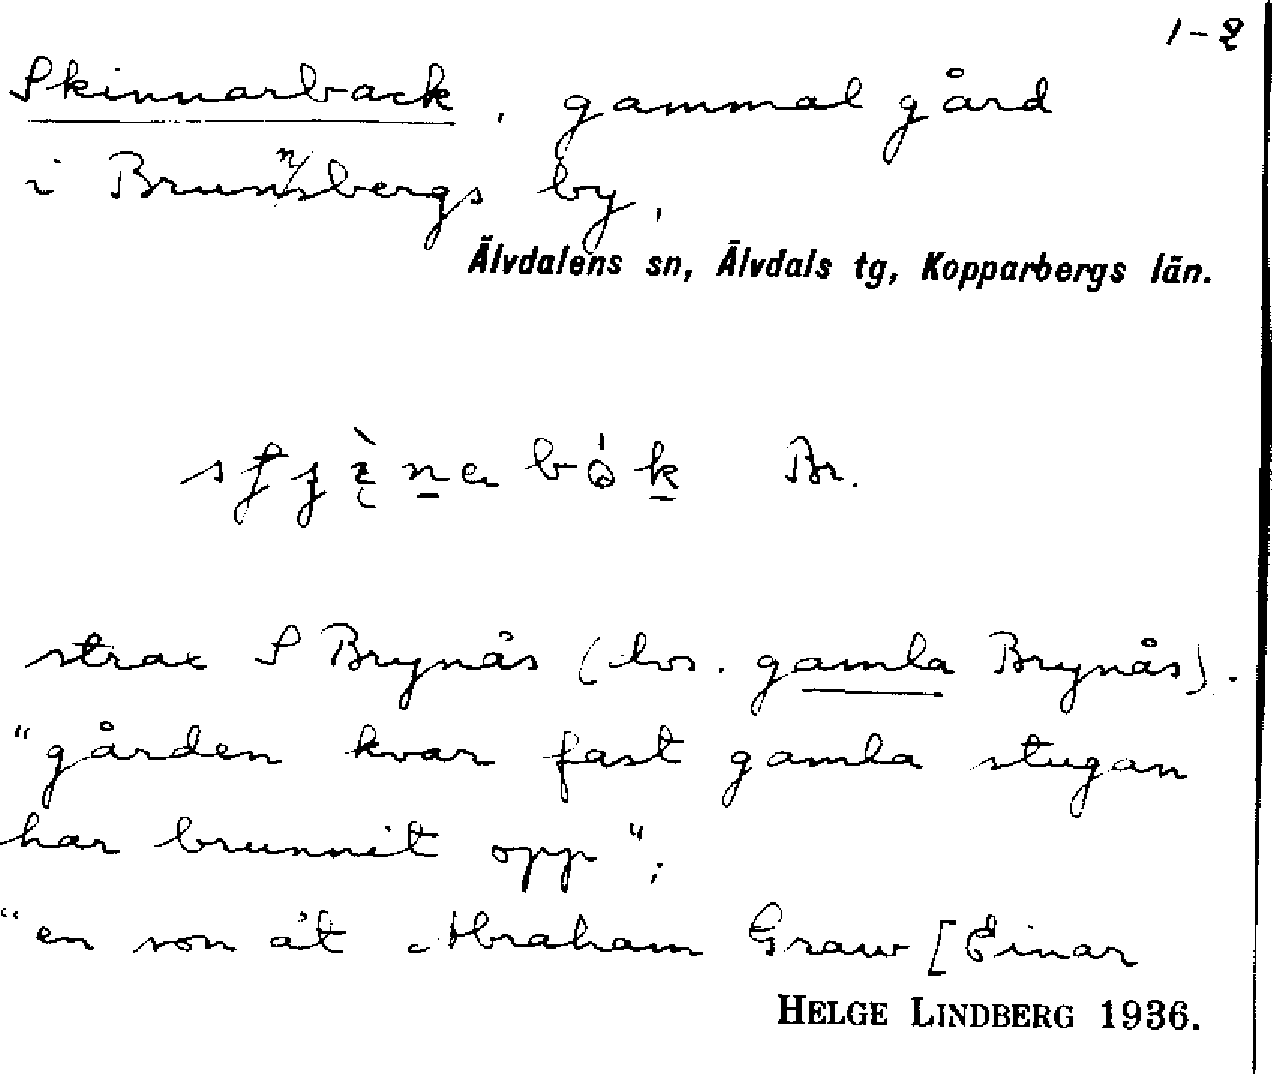 1-2
Skinnarback, gammal gård
i Brunnsbergs by,
Älvdalens sn, Älvdals tg, Kopparbergs län.
Br.
strax S Brynås (hos. gamla Brynås).
"gården kvar fast gamla stugan
har brunnit opp";
"en son åt Abraham Graw [Einar
HELGE LINDBERG 1936.